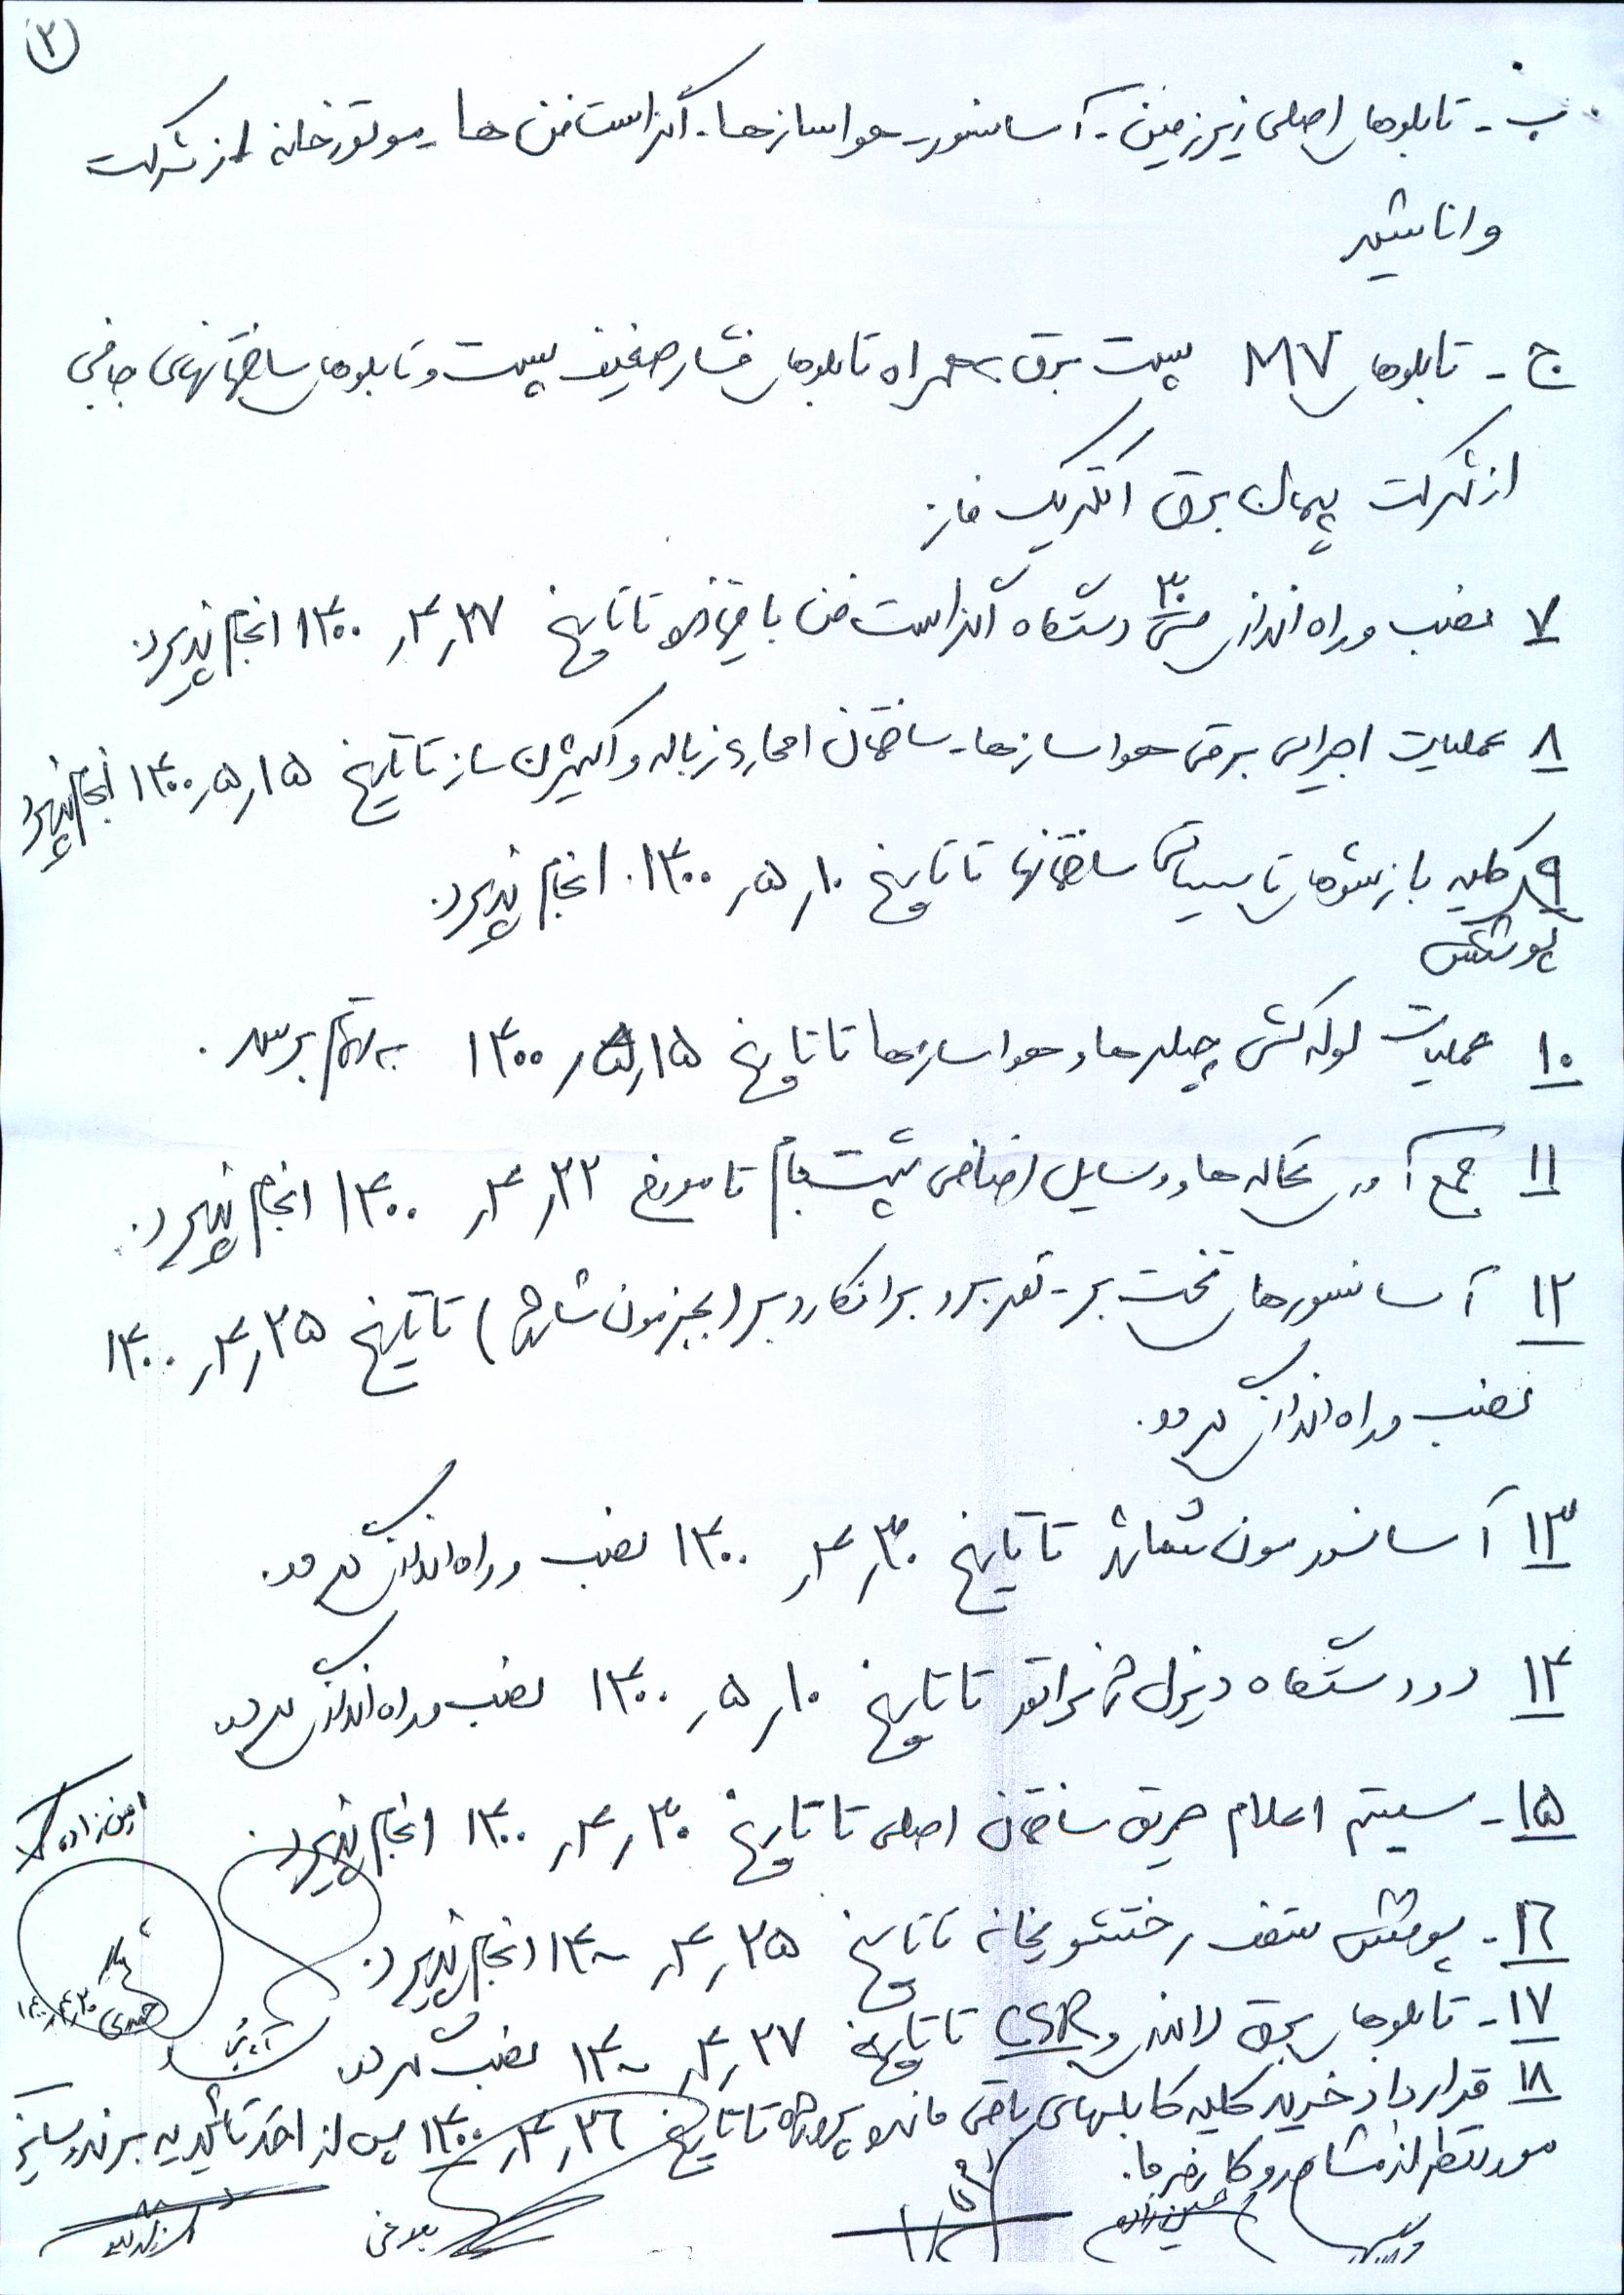 ۲
ب - تابلوهای اصلی زیرزمین - آسانسور - هواسازها - اگزاست فن ها - موتورخانه از شرکت
وانا
ج - تابلوهای MV پست برق به همراه تابلوهای فشار ضعیف پست و تابلوهای ساختمانهای جانبی
از شرکت پیمان برق الکتریک فاز
۷ نصب و راه اندازی ۳۰ دستگاه اگزاست فن باقیمانده تا تاریخ ۲۷ر۴ر۱۴۰۰ انجام پذیرد.
۸ عملیات اجرایی برقی هواسازها - ساختمان امحاء زباله و اکسیژن ساز تا تاریخ ۱۵ر۵ر۱۴۰۰ انجام پذیرد
۹ کلیه بازشوهای تاسیساتی ساختمانها تا تاریخ ۱۰ر۵ر۱۴۰۰ انجام پذیرد.
پوشش
۱۰ عملیات لوله کشی چیلرها و هواسازها تا تاریخ ۱۵ر۵ر۱۴۰۰ به اتمام برسد.
۱۱ جمع آوری نخاله ها و وسایل اضافی پشت بام تا مورخ ۲۲ر۴ر۱۴۰۰ انجام پذیرد.
۱۲ آسانسورهای تخت بر - نفربر و برانکاردبر (بجز مون شارژ) تا تاریخ ۲۵ر۴ر۱۴۰۰
نصب و راه اندازی گردد.
۱۳ آسانسور مون شارژ تا تاریخ ۳۰ر۴ر۱۴۰۰ نصب و راه اندازی گردد.
۱۴ دو دستگاه دیزل ژنراتور تا تاریخ ۱۰ر۵ر۱۴۰۰ نصب و راه اندازی گردد
۱۵ - سیستم اعلام حریق ساختمان اصلی تا تاریخ ۳۰ر۴ر۱۴۰۰ انجام پذیرد.
امین زاده
۱۶ - پوشش سقف رختشویخانه تا تاریخ ۲۵ر۴ر۱۴۰۰ انجام پذیرد.
۱۷ - تابلوهای برق لاندری و CSR تا تاریخ ۲۷ر۴ر۱۴۰۰ نصب گردد.
۱۸ قرارداد خرید کلیه کابلهای باقی مانده پروژه تا تاریخ ۲۶ر۴ر۱۴۰۰ پس از اخذ تائیدیه برند و سایز
مورد نظر از مشاور و کارفرما.